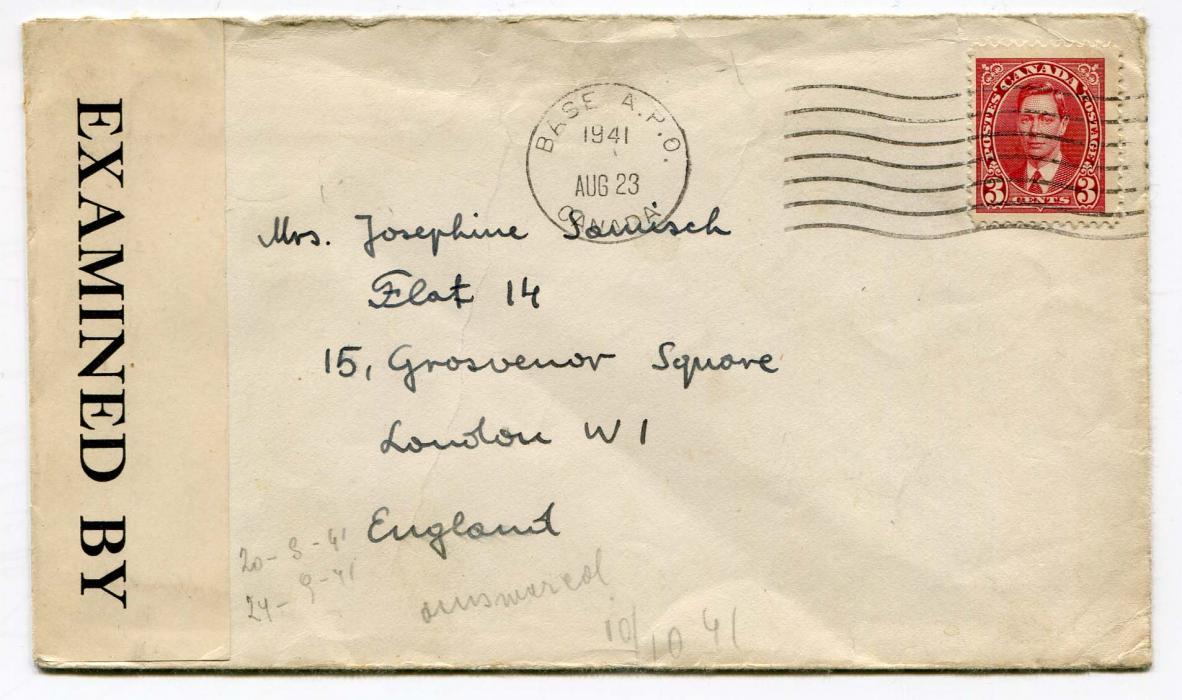 EXAMINED BY
BASE A.P.O.
1941
AUG 23
CANADA
CANADA
POSTES POSTAGE
3 CENTS 3
Mrs. Josephine Samisch
Flat 14
15, Grosvenor Square
London W 1
England
20-8-41
24-9-41
answered
10/10 41